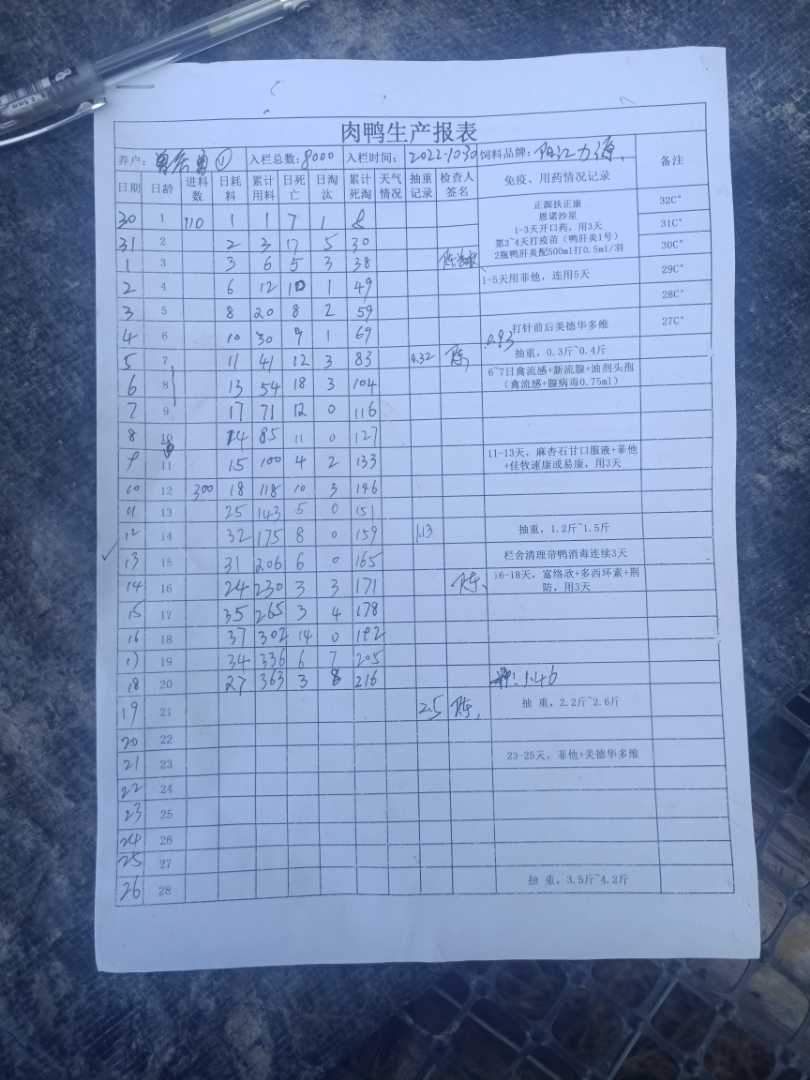 肉鸭生产报表
养户： 入栏总数：8000 入栏时间：2022.10.30 饲料品牌：阳江力源 备注
日期 日龄 进料数 日耗料 累计用料 日死亡 日淘汰 累计死淘 天气情况 抽重记录 检查人签名 免疫、用药情况记录
30 1 110 1 1 7 1 8 正源扶正康 32C°
恩诺沙星
31 2 2 3 17 5 30 1-3天开口药，用3天 31C°
第3~4天打疫苗（鸭肝炎1号）
1 3 3 6 5 3 38 2瓶鸭肝炎配500ml打0.5ml/羽 30C°
2 4 6 12 10 1 49 1-5天用菲他，连用5天 29C°
3 5 8 20 8 2 59 28C°
4 6 10 30 9 1 69 打针前后美德华多维 27C°
0.93
5 7 11 41 12 3 83 0.32 陈 抽重，0.3斤~0.4斤
6 8 13 54 18 3 104 6~7日禽流感+新流腺+油剂头孢
（禽流感+腺病毒0.75ml）
7 9 17 71 12 0 116
8 10 14 85 11 0 127
9 11 15 100 4 2 133 11-13天，麻杏石甘口服液+菲他
+佳牧速康或易康，用3天
10 12 300 18 118 10 3 146
11 13 25 143 5 0 151
12 14 32 175 8 0 159 1.13 抽重，1.2斤~1.5斤
13 15 31 206 6 0 165 栏舍清理带鸭消毒连续3天
14 16 24 230 3 3 171 陈 16-18天，富络欣+多西环素+荆
防，用3天
15 17 35 265 3 4 178
16 18 37 302 14 0 192
17 19 34 336 6 7 205
18 20 27 363 3 8 216 1.46
19 21 2.5 陈 抽 重，2.2斤~2.6斤
20 22
21 23 23-25天，菲他+美德华多维
22 24
23 25
24 26
25 27
26 28 抽 重，3.5斤~4.2斤